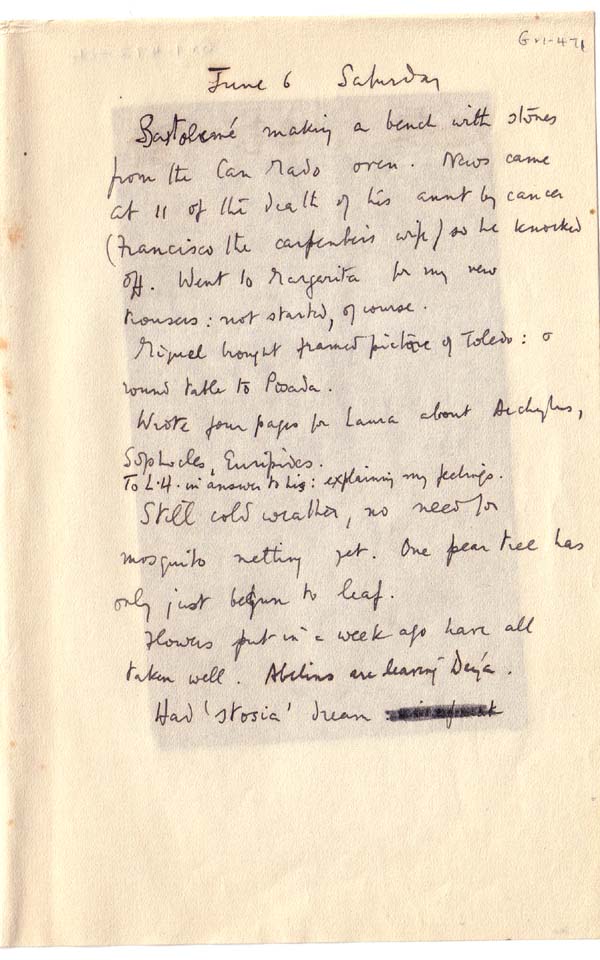 G-1-471
June 6 Saturday
Bartolomé making a bench with stones
from the Can Mado oven. News came
at 11 of the death of his aunt by cancer
(Francisco the carpenter's wife) so he knocked
off. Went to Margarita for my new
trousers: not started, of course.
Miguel bought framed picture of Toledo: a
round table to Posada.
Wrote four pages for Laura about Aechylus,
Sophocles, Euripides.
To L.H. in answer to his: explaining my feelings.
Still cold weather, no need for
mosquito netting yet. One pear tree has
only just begun to leaf.
Flowers put in a week ago have all
taken well. Abelins are leaving Deyá.
Had 'stosia' dream